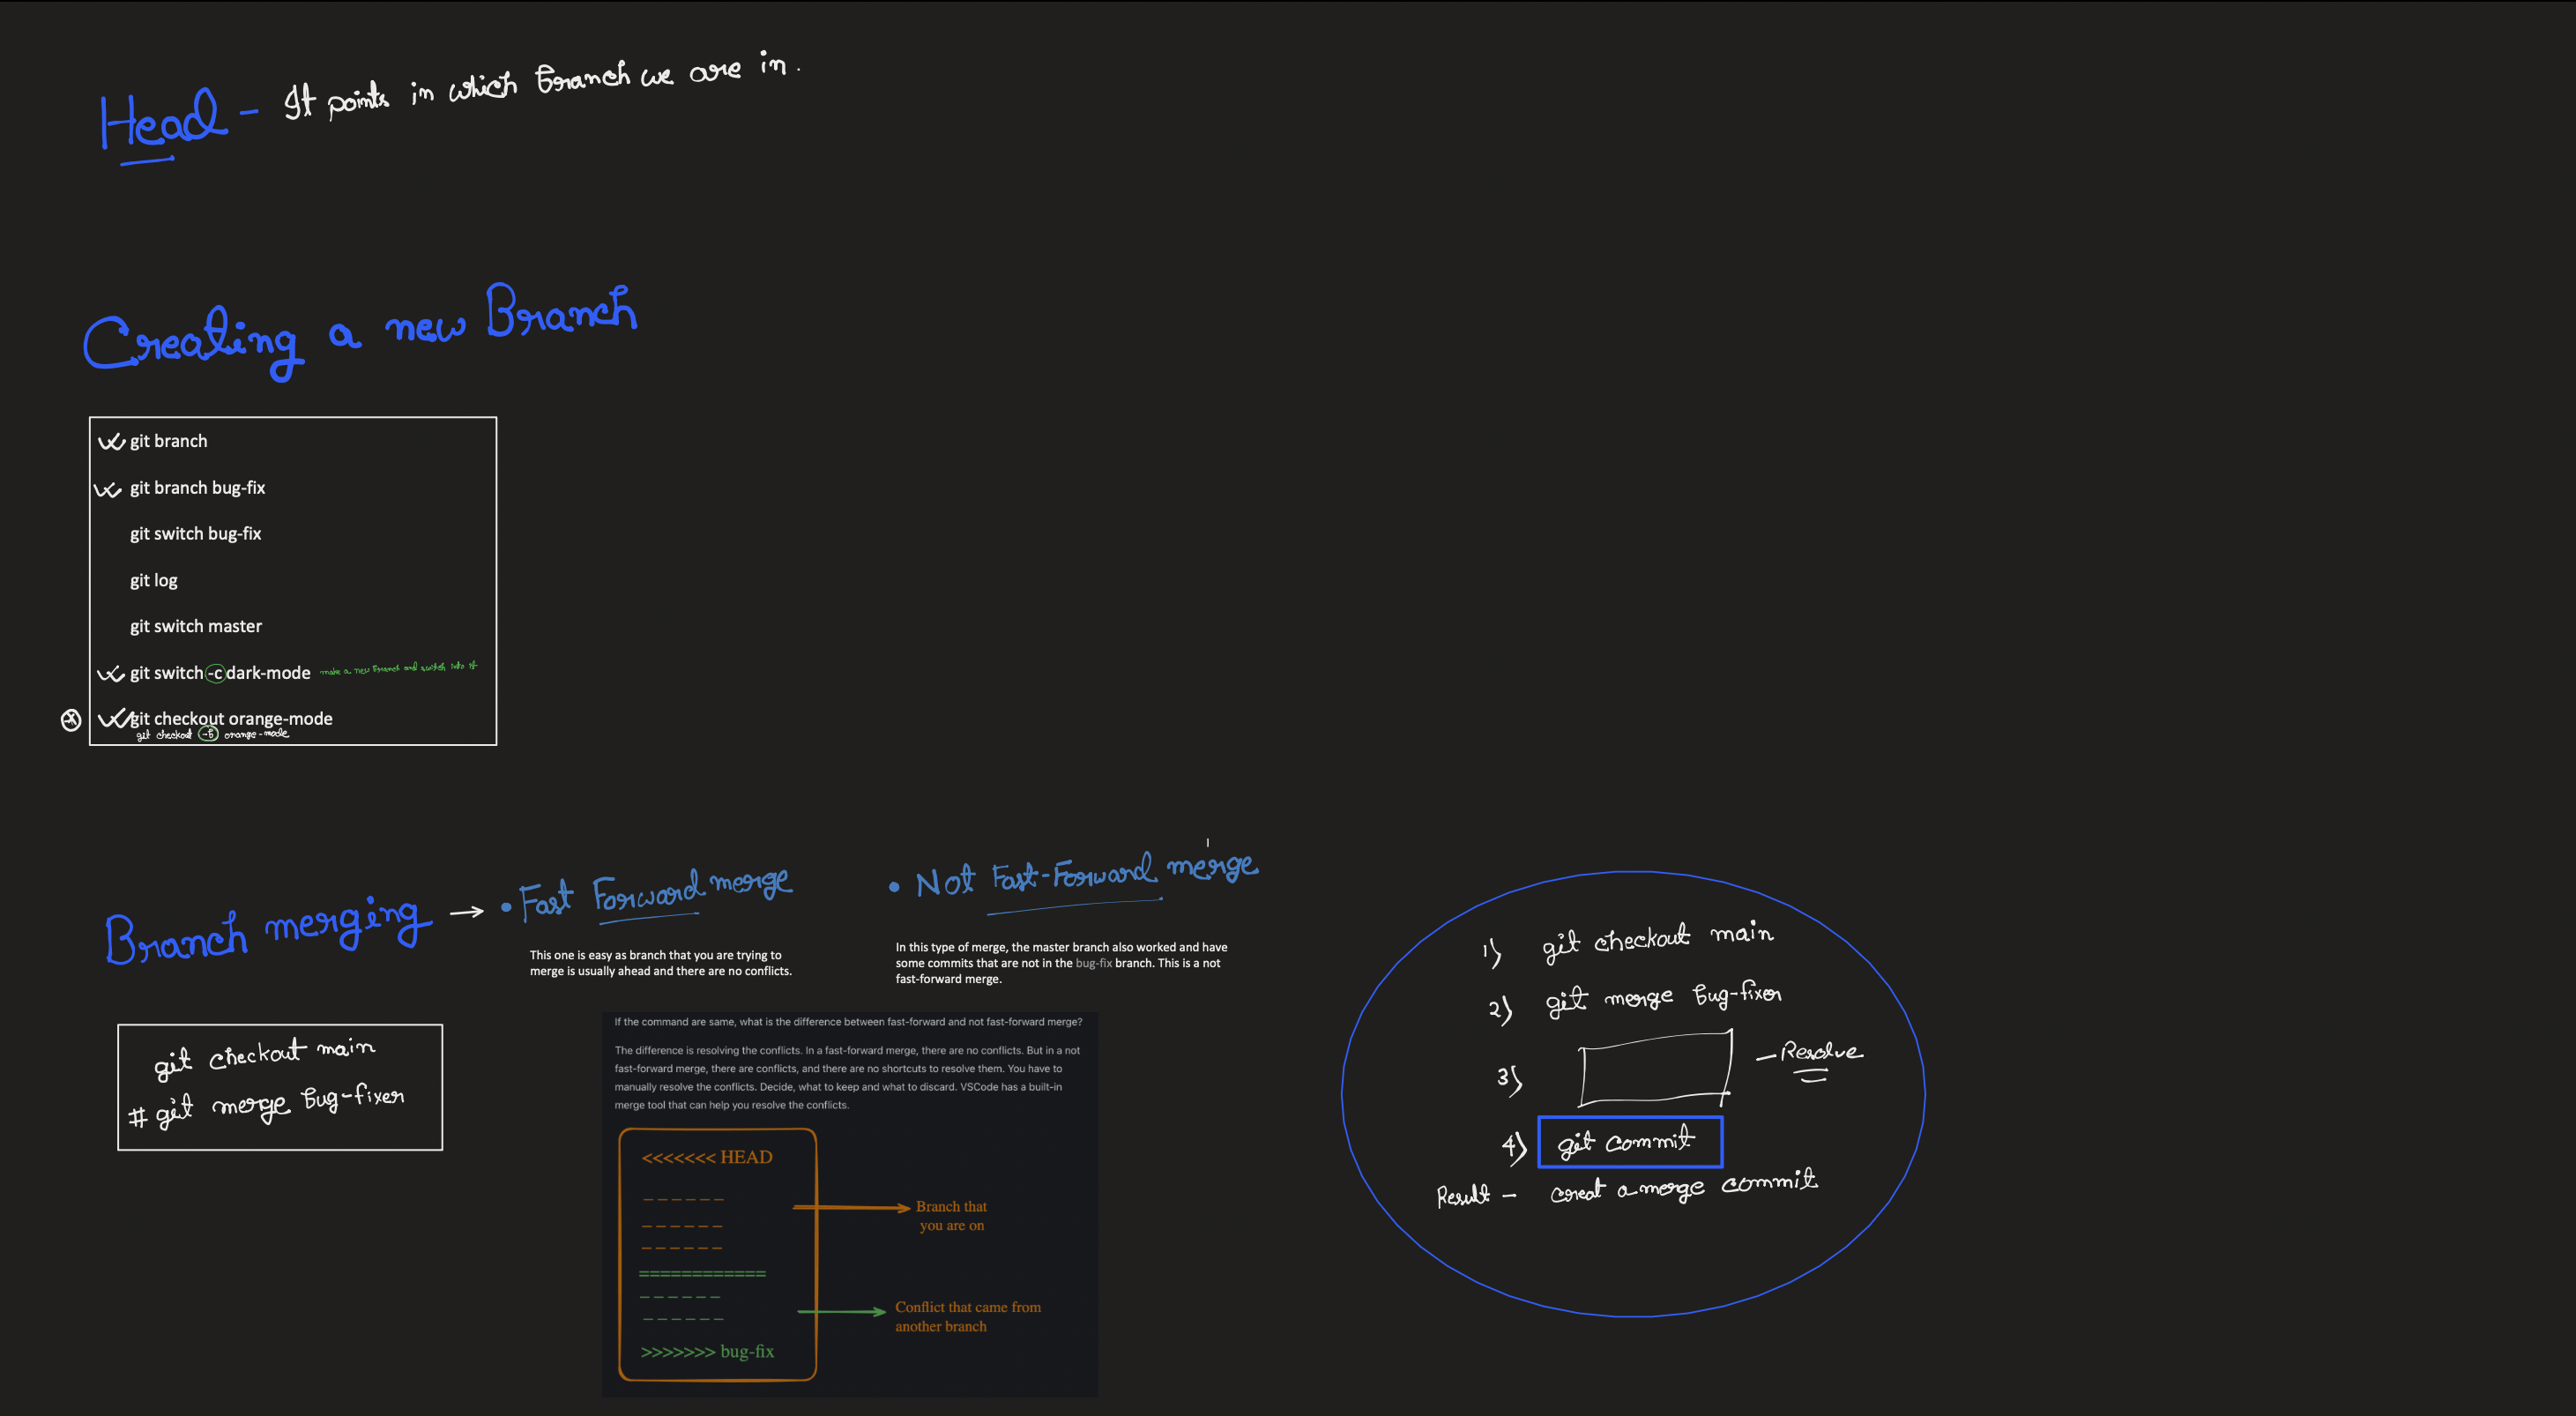 Head - It points in which branch we are in.
Creating a new Branch
git branch
git branch bug-fix
git switch bug-fix
git log
git switch master
git switch -c dark-mode make a new branch and switch into it
git checkout orange-mode
git checkout -b orange-mode
Branch merging → • Fast Forward merge
This one is easy as branch that you are trying to
merge is usually ahead and there are no conflicts.
• Not Fast-Forward merge
In this type of merge, the master branch also worked and have
some commits that are not in the bug-fix branch. This is a not
fast-forward merge.
git checkout main
# git merge bug-fixer
If the command are same, what is the difference between fast-forward and not fast-forward merge?
The difference is resolving the conflicts. In a fast-forward merge, there are no conflicts. But in a not
fast-forward merge, there are conflicts, and there are no shortcuts to resolve them. You have to
manually resolve the conflicts. Decide, what to keep and what to discard. VSCode has a built-in
merge tool that can help you resolve the conflicts.
<<<<<<< HEAD
Branch that
you are on
============
Conflict that came from
another branch
>>>>>>> bug-fix
1) git checkout main
2) git merge bug-fixer
3) - Resolve
4) git commit
Result - creat a merge commit